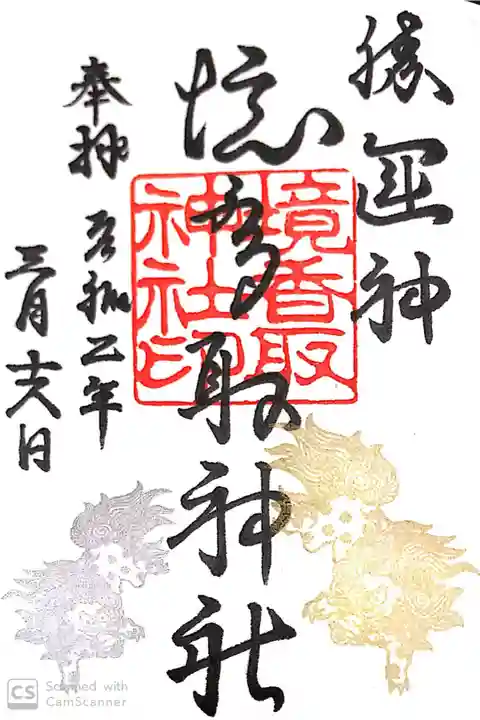 勝運神
境香取神社
境香取神社印
奉拝
令和乙年
三月十六日
CS Scanned with
CamScanner